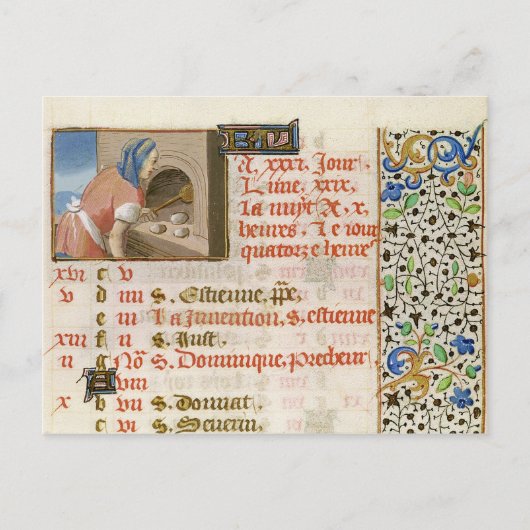 A xxxi Jour
Lune xxix
La nuyt A x
heures. Le iour
quatorze heures
xvi c v
v d iiii S. Estienne, ppe
e iii La Invention, S. estienne
xiii f ii S. Just
ii g No S. Dominique, precheur
A viii
x b vii S. Donnat,
c vi S. Severin,